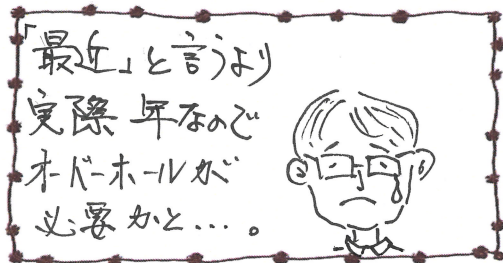 「最近」と言うより
実際 年なので
オードーホールが
必要かと…。